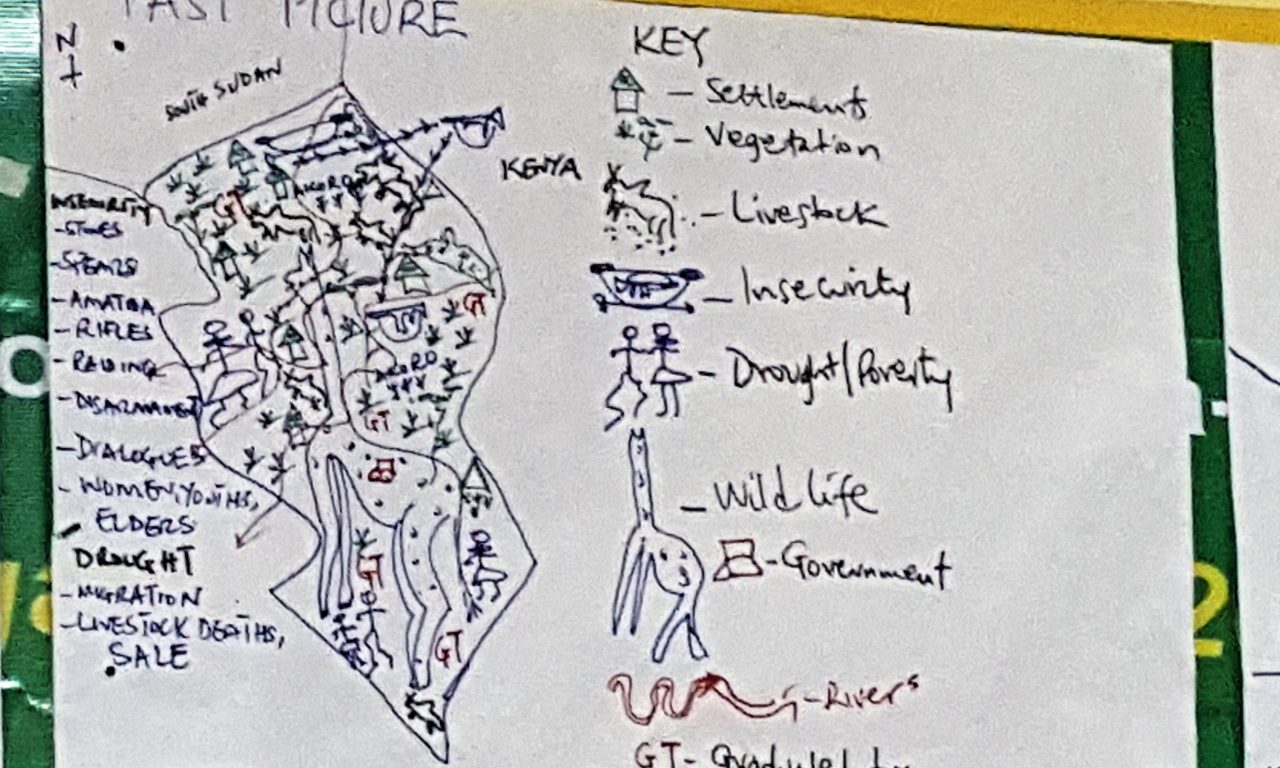 PAST PICTURE
N
SOUTH SUDAN
KENYA
INSECURITY
-STONES
-SPEARS
-AMATIDA
-RIFLES
-RAIDING
-DISARMAMENT
-DIALOGUES
-WOMEN, YOUTHS,
ELDERS
DROUGHT
-MIGRATION
-LIVESTOCK DEATHS,
SALE
GT
GT
GT
GT
GT
KEY
- Settlements
- Vegetation
- Livestock
- Insecurity
- Drought/Poverty
- Wild life
- Government
- Rivers
GT-